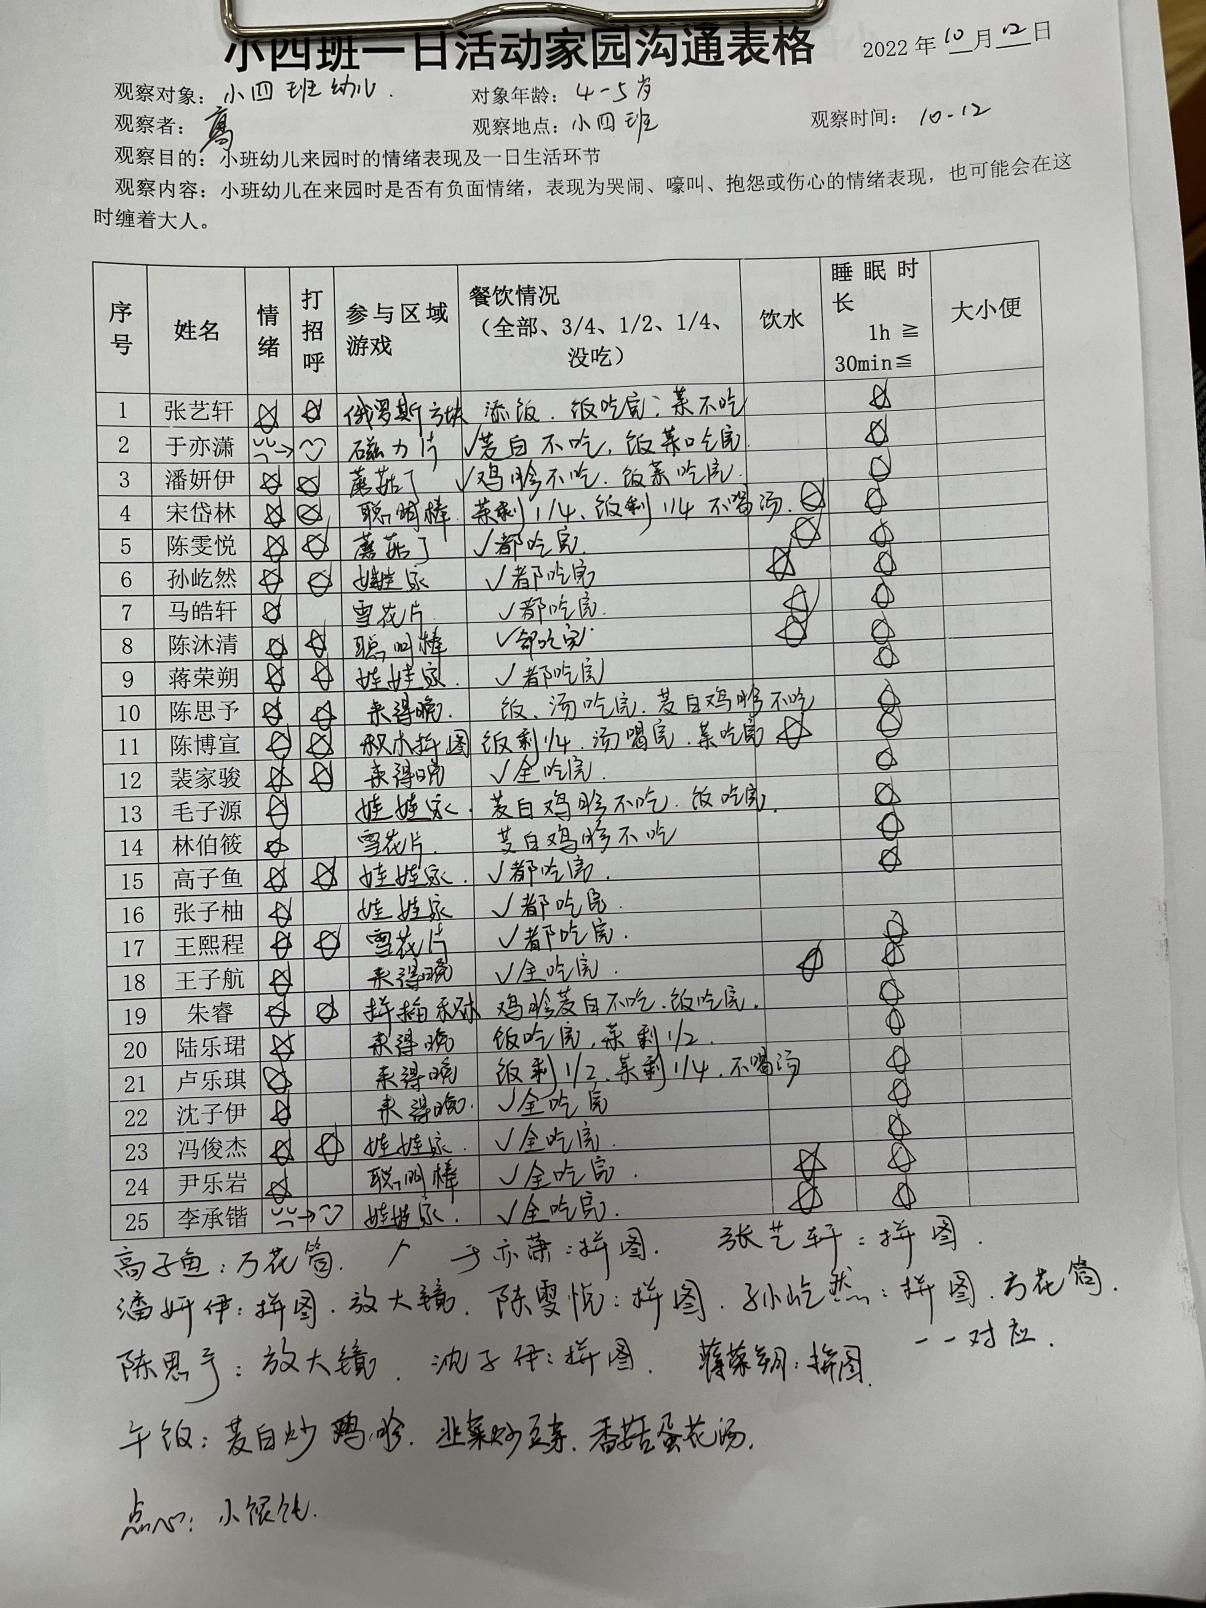 小四班一日活动家园沟通表格 2022年10月12日
观察对象：小四班幼儿. 对象年龄：4-5岁
观察者：高 观察地点：小四班 观察时间：10-12
观察目的：小班幼儿来园时的情绪表现及一日生活环节
观察内容：小班幼儿在来园时是否有负面情绪，表现为哭闹、嚎叫、抱怨或伤心的情绪表现，也可能会在这
时缠着大人。
序号 姓名 情绪 打招呼 参与区域游戏 餐饮情况（全部、3/4、1/2、1/4、没吃） 饮水 睡眠时长 1h ≧ 30min≦ 大小便
1 张艺轩 俄罗斯方块 添饭. 饭吃完; 菜不吃
2 于亦潇 磁力片 ✓茭白不吃, 饭菜吃完
3 潘妍伊 蘑菇丁 ✓鸡胗不吃. 饭菜吃完.
4 宋岱林 聪明棒. 菜剩1/4、饭剩1/4 不喝汤.
5 陈雯悦 蘑菇丁 ✓都吃完.
6 孙屹然 娃娃家 ✓都吃完
7 马皓轩 雪花片. ✓都吃完.
8 陈沐清 聪明棒 ✓都吃完.
9 蒋荣朔 娃娃家. ✓都吃完
10 陈思予 来得晚. 饭、汤吃完. 茭白鸡胗不吃
11 陈博宣 积木拼图 饭剩1/4. 汤喝完. 菜吃完
12 裴家骏 来得晚 ✓全吃完.
13 毛子源 娃娃家. 茭白鸡胗不吃. 饭吃完.
14 林伯筱 雪花片. 茭白鸡胗不吃
15 高子鱼 娃娃家. ✓都吃完.
16 张子柚 娃娃家 ✓都吃完.
17 王熙程 雪花片 ✓都吃完.
18 王子航 来得晚 ✓全吃完.
19 朱睿 鸡胗茭白不吃. 饭吃完.
20 陆乐珺 来得晚 饭吃完, 菜剩1/2.
21 卢乐琪 来得晚 饭剩1/2、菜剩1/4. 不喝汤
22 沈子伊 来得晚. ✓全吃完
23 冯俊杰 娃娃家. ✓全吃完.
24 尹乐岩 聪明棒 ✓全吃完.
25 李承锴 娃娃家. ✓全吃完.
高子鱼：万花筒. 于亦萧：拼图. 张艺轩：拼图.
潘妍伊：拼图. 放大镜. 陈雯悦：拼图. 孙屹然：拼图. 万花筒.
一一对应.
陈思予：放大镜. 沈子伊：拼图. 蒋荣朔：拼图.
午饭：茭白炒鸡胗. 韭菜炒豆芽. 香菇蛋花汤.
点心：小馄饨.